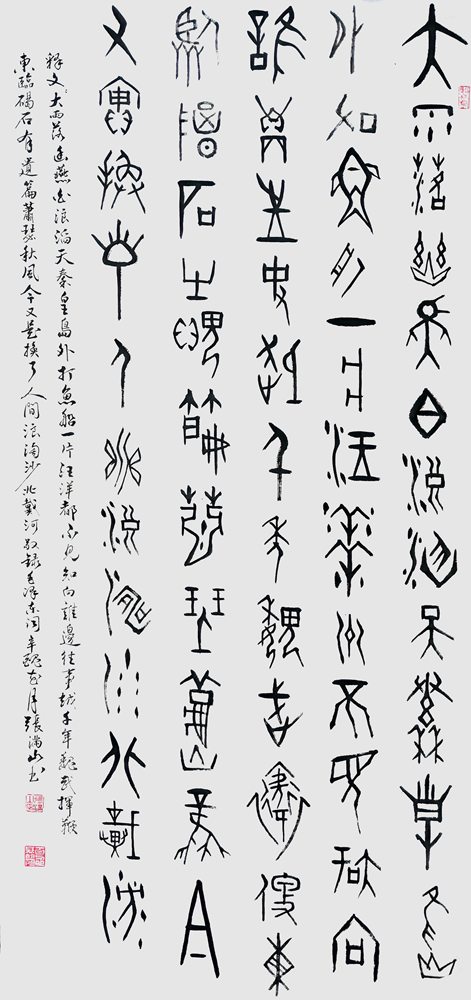 大雨落幽燕白浪滔天秦皇島
外打魚船一片汪洋都不見知向
誰邊往事越千年魏武揮鞭東
臨碣石有遺篇蕭瑟秋風今
又是換了人間浪淘沙北戴河
释文：大雨落幽燕白浪滔天秦皇島外打魚船一片汪洋都不見知向誰邊往事越千年魏武揮鞭
東臨碣石有遺篇蕭瑟秋風今又是換了人間浪淘沙北戴河敬録毛澤東詞辛醜月張满山书